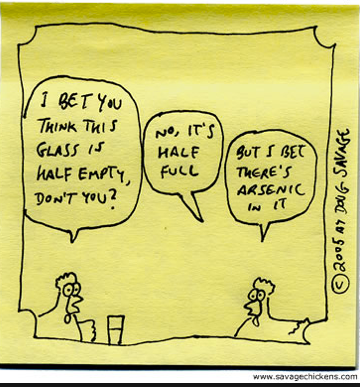 I BET YOU
THINK THIS
GLASS IS
HALF EMPTY,
DON'T YOU?
NO, IT'S
HALF
FULL
BUT I BET
THERE'S
ARSENIC
IN IT
© 2005 BY DOUG SAVAGE
www.savagechickens.com